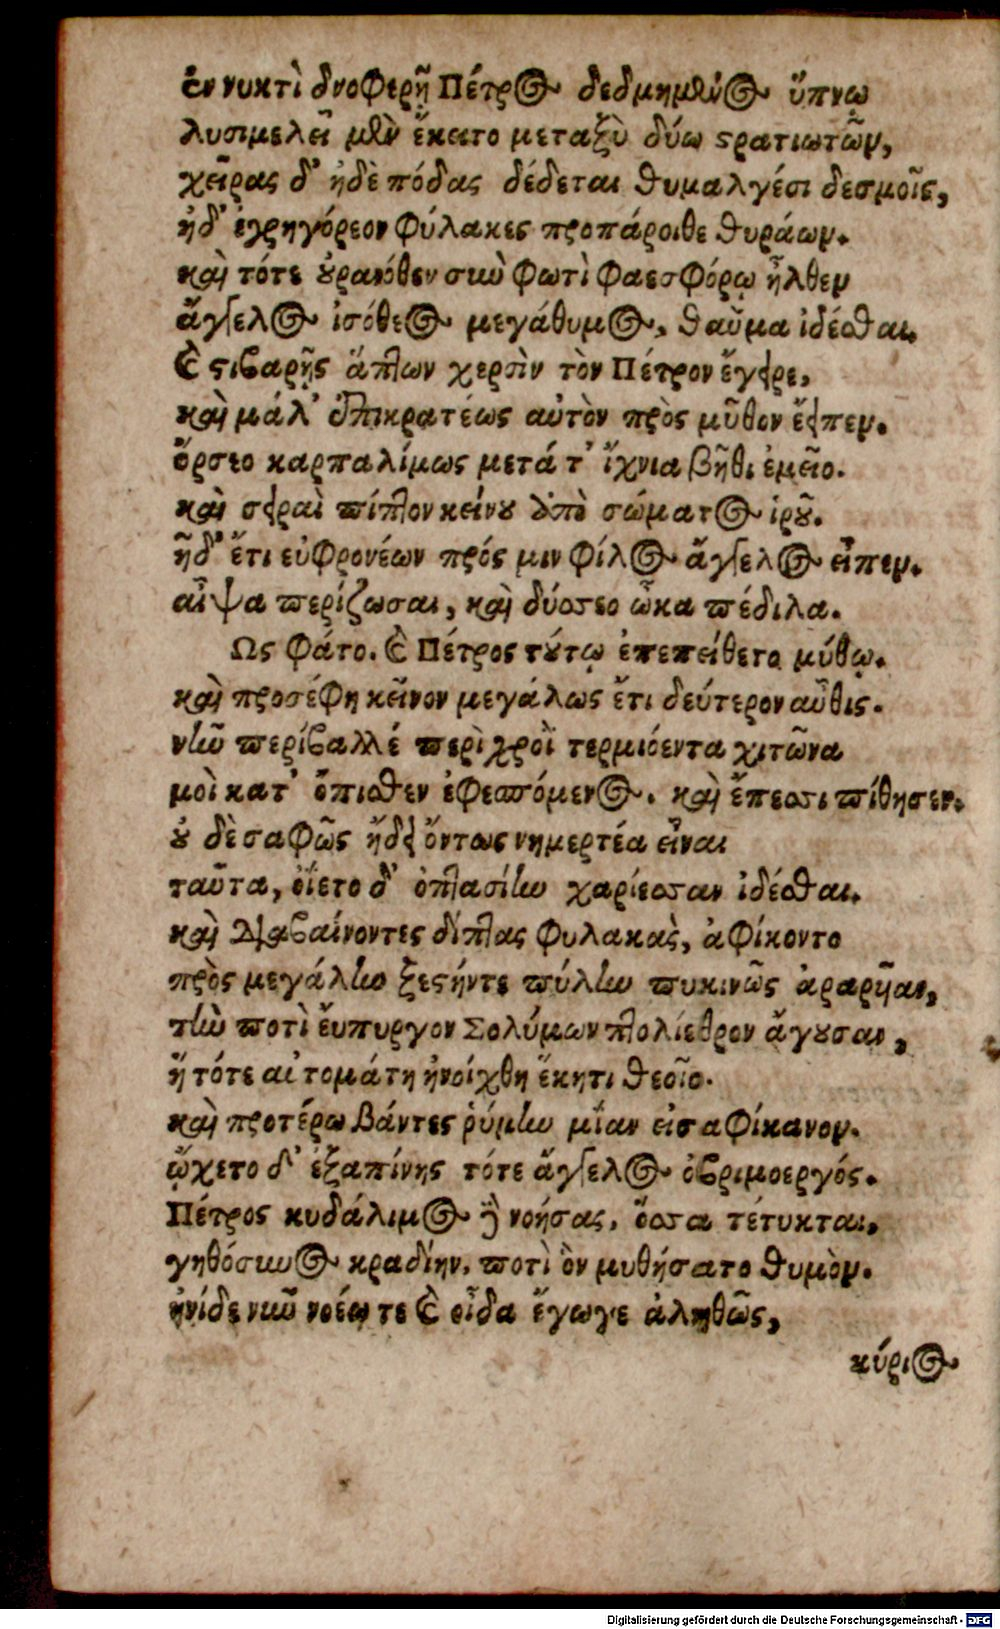 ἐν νυκτὶ δνοφερῇ Πέτρος δεδμημένος ὕπνῳ
λυσιμελεῖ μὲν ἔκειτο μεταξὺ δύω στρατιωτῶν,
χεῖρας δ' ἠδὲ πόδας δέδεται θυμαλγέσι δεσμοῖς,
ἠδ' ἐγρηγόρεον φύλακες προπάροιθε θυράων.
καὶ τότε οὐρανόθεν σὺν φωτὶ φαεσφόρῳ ἦλθεν
ἄγγελος ἰσόθεος μεγάθυμος, θαῦμα ἰδέσθαι.
καὶ στιβαρῇς ἅπτων χερσὶν τὸν Πέτρον ἔγειρε,
καὶ μάλ' ἐπικρατέως αὐτὸν πρὸς μῦθον ἔειπεν.
ὄρσεο καρπαλίμως μετά τ' ἴχνια βῆθι ἐμεῖο.
καὶ σειραὶ πίπτον κείνου ἀπὸ σώματος ἱροῦ.
ἦδ' ἔτι εὐφρονέων πρός μιν φίλος ἄγγελος εἶπεν.
αἶψα περίζωσαι, καὶ δύσσεο ὦκα πέδιλα.
Ως φάτο. καὶ Πέτρος τούτῳ ἐπεπείθετο μύθῳ.
καὶ προσέφη κεῖνον μεγάλως ἔτι δεύτερον αὖθις.
νῦν περίβαλλέ περὶ χροῒ τερμιόεντα χιτῶνα
μοὶ κατ' ὄπισθεν ἐφεσπόμενος. καὶ ἔπεσσι πίθησεν.
οὐ δὲ σαφῶς ᾔδει ὄντως νημερτέα εἶναι
ταῦτα, ὀΐετο δ' ὀπτασίην χαρίεσσαν ἰδέσθαι.
καὶ διαβαίνοντες δίπτας φυλακὰς, ἀφίκοντο
πρὸς μεγάλην ξεστήντε πύλην πυκινῶς ἀραρῆαν,
τὴν ποτὶ ἔυπυργον Σολύμων πτολίεθρον ἄγουσαν,
ἥ τότε αὐτομάτη ἠνοίχθη ἕκητι θεοῖο.
καὶ προτέρω βάντες ῥύμην μίαν εἰσαφίκανον.
ᾤχετο δ' ἐξαπίνης τότε ἄγγελος ὀβριμοεργός.
Πέτρος κυδάλιμος δὲ νοήσας, ὅσσα τέτυκται,
γηθόσυνος κραδίην, ποτὶ ὃν μυθήσατο θυμὸν.
ἠνίδε νῦν νοέω τε καὶ οἶδα ἔγωγε ἀληθῶς,
κύριος
Digitalisierung gefördert durch die Deutsche Forschungsgemeinschaft - DFG